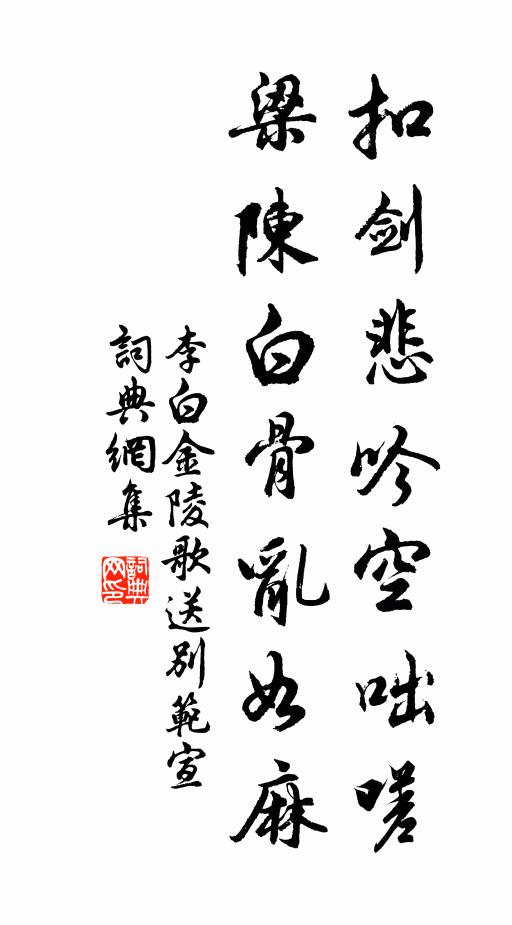 扣劍悲吟空咄嗟
梁陳白骨亂如麻
李白金陵歌送別範宣
詞典網集
詞典網印